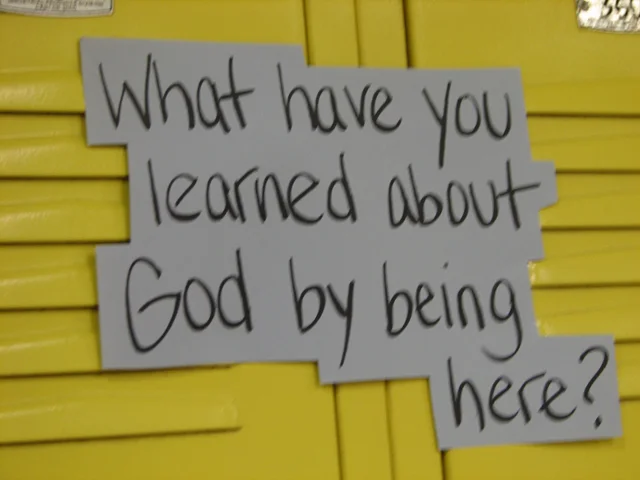 What have you
learned about
God by being
here?